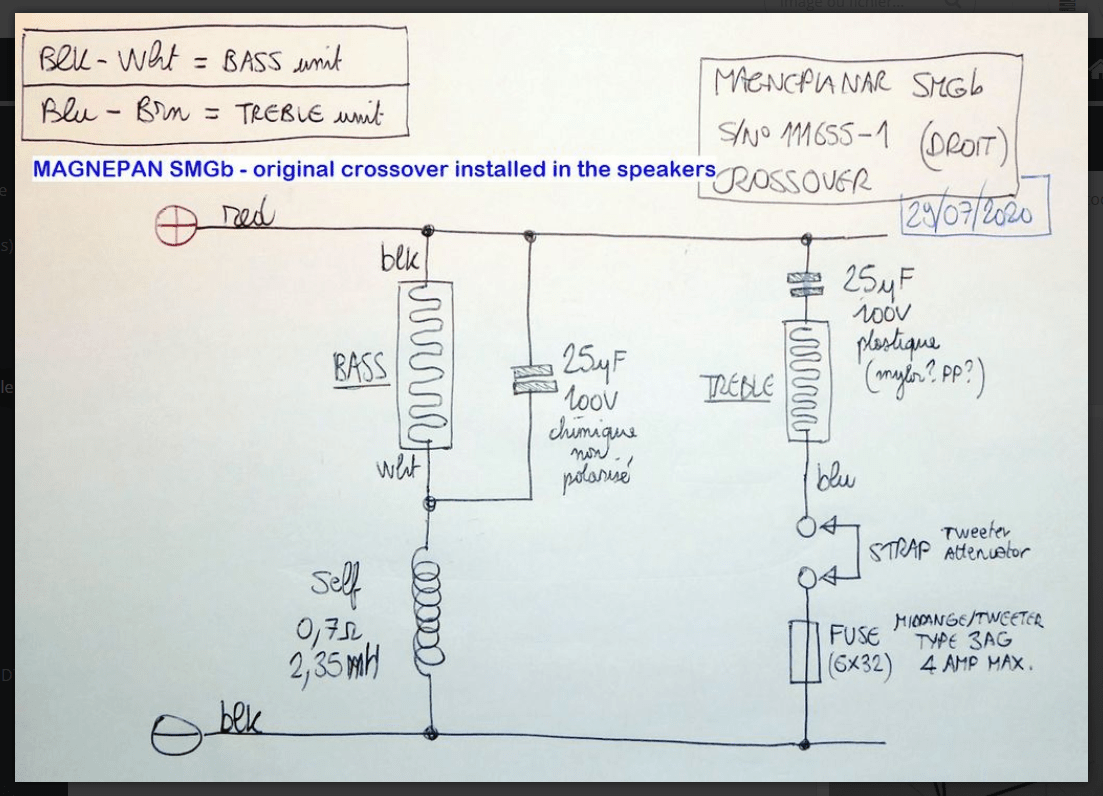 Blk - Wht = BASS unit
Blu - Brn = TREBLE unit
MAGNEPLANAR SMGb
S/N° 111655-1 (DROIT)
CROSSOVER
29/07/2020
MAGNEPAN SMGb - original crossover installed in the speakers
red
blk
BASS
25µF
100V
chimique
non
polarisé
wht
25µF
100V
plastique
(mylar? PP?)
TREBLE
blu
STRAP Tweeter
Attenuator
Self
0,7Ω
2,35mH
FUSE
(6x32)
MIDRANGE/TWEETER
TYPE 3AG
4 AMP MAX.
blk